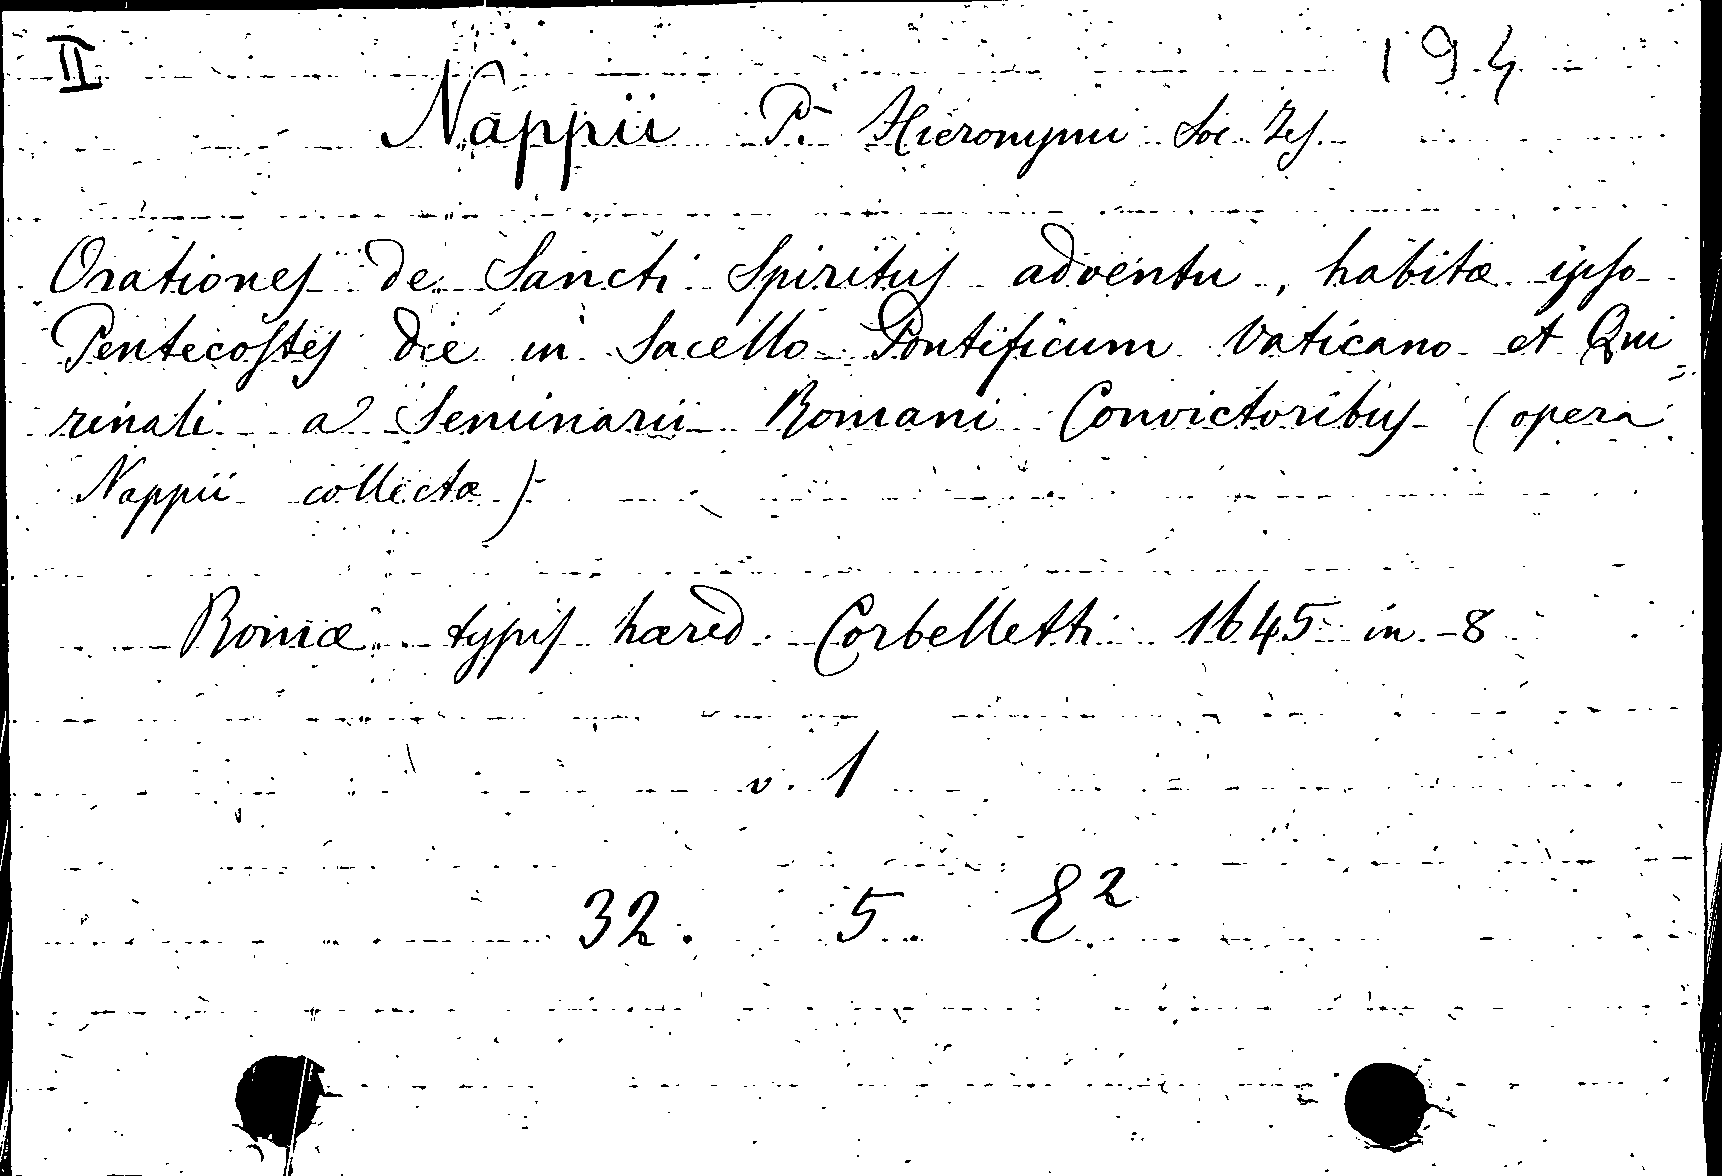 II 194
Nappii P. Hieronymi Soc. Jes.
Orationes de Sancti Spiritus adventu, habitæ ipso
Pentecostes die in Sacello Pontificum Vaticano et Qui=
rinali a Seminarii Romani Convictoribus (opera
Nappii collectæ)
Romæ typis hæred. Corbelletti 1645 in -8
v. 1
32. 5. E²